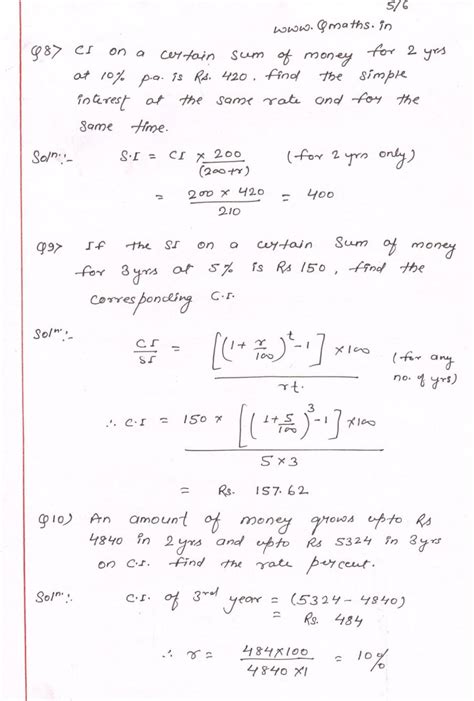 5/6
www.Qmaths.in
Q8> CI on a certain sum of money for 2 yrs
at 10% p.a. is Rs. 420. find the simple
interest at the same rate and for the
same time.
Soln:- S.I = CI × 200 / (200+r) (for 2 yrs only)
= 200 × 420 / 210 = 400
Q9> If the SI on a certain sum of money
for 3yrs at 5% is Rs 150, find the
corresponding C.I.
Soln:- CI / SI = [(1 + r/100)^t - 1] × 100 / rt. (for any
no. of yrs)
∴ C.I = 150 × [(1 + 5/100)^3 - 1] × 100 / 5 × 3
= Rs. 157.62
Q10) An amount of money grows upto Rs
4840 in 2yrs and upto Rs 5324 in 3yrs
on C.I. find the rate percent.
Soln:. C.I. of 3rd year = (5324 - 4840)
= Rs. 484
∴ r = 484×100 / 4840 ×1 = 10%